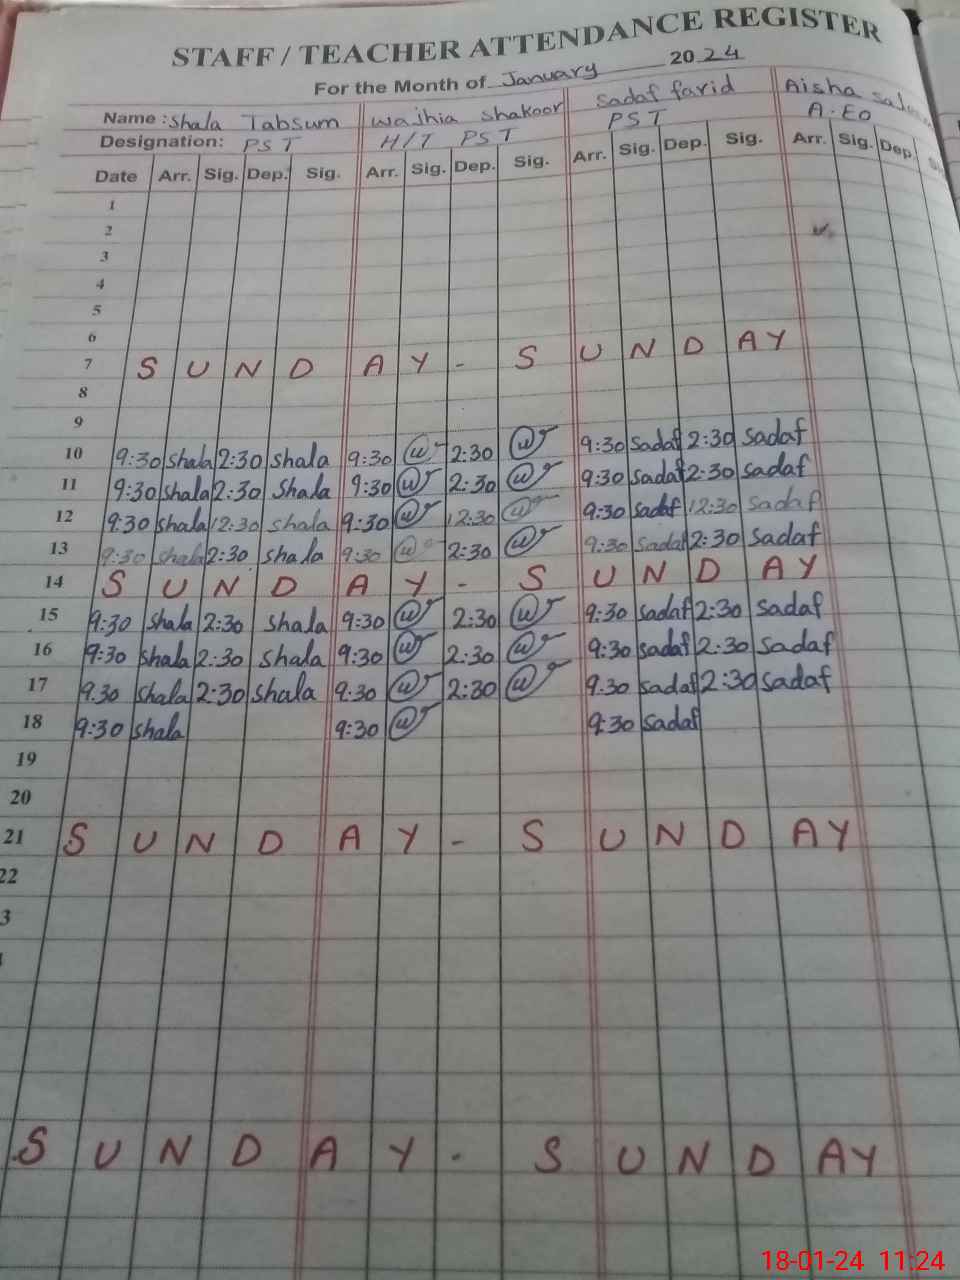 STAFF / TEACHER ATTENDANCE REGISTER
For the Month of January 2024
Name : Shala Tabsum wajhia shakoor Sadaf farid Aisha
Designation: PST H/T PST PST A.EO
Date Arr. Sig. Dep. Sig. Arr. Sig. Dep. Sig. Arr. Sig. Dep. Sig. Arr. Sig. Dep.
1
2
3
4
5
6
7 SUNDAY - SUNDAY
8
9
10 9:30 shala 2:30 shala 9:30 w 2:30 w 9:30 sadaf 2:30 sadaf
11 9:30 shala 2:30 shala 9:30 w 2:30 w 9:30 sadaf 2:30 sadaf
12 9:30 shala 12:30 shala 9:30 w 12:30 w 9:30 sadaf 12:30 sadaf
13 9:30 shala 2:30 shala 9:30 w 2:30 w 9:30 sadaf 2:30 sadaf
14 SUNDAY - SUNDAY
15 9:30 shala 2:30 shala 9:30 w 2:30 w 9:30 sadaf 2:30 sadaf
16 9:30 shala 2:30 shala 9:30 w 2:30 w 9:30 sadaf 2:30 sadaf
17 9.30 shala 2:30 shala 9:30 w 2:30 w 9.30 sadaf 2:30 sadaf
18 9:30 shala 9:30 w 9:30 sadaf
19
20
21 SUNDAY - SUNDAY
22
3
SUNDAY - SUNDAY
18-01-24 11:24